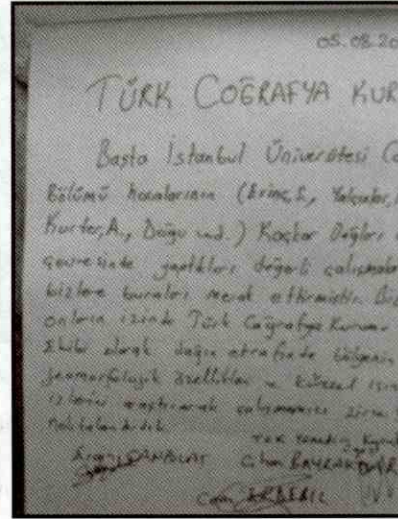 05.08.20
TÜRK COĞRAFYA KUR
Başta İstanbul Üniversitesi Co
Bölümü hocalarının (Erinç,S., Yalçınlar,
Kurter,A., Doğu vd.) Kaçkar Dağları
çevresinde yaptıkları değerli çalışmala
bizlere buraları merak ettirmiştir. Biz
onların izinde Türk Coğrafya Kurumu
Ekibi olarak dağın etrafında bölgenin
jeomorfolojik özellikleri ve küresel ısın
izlerini araştırarak çalışmamızı zirve
noktalandırdık.
TCK
CANPOLAT Cihan BAYRAKDAR